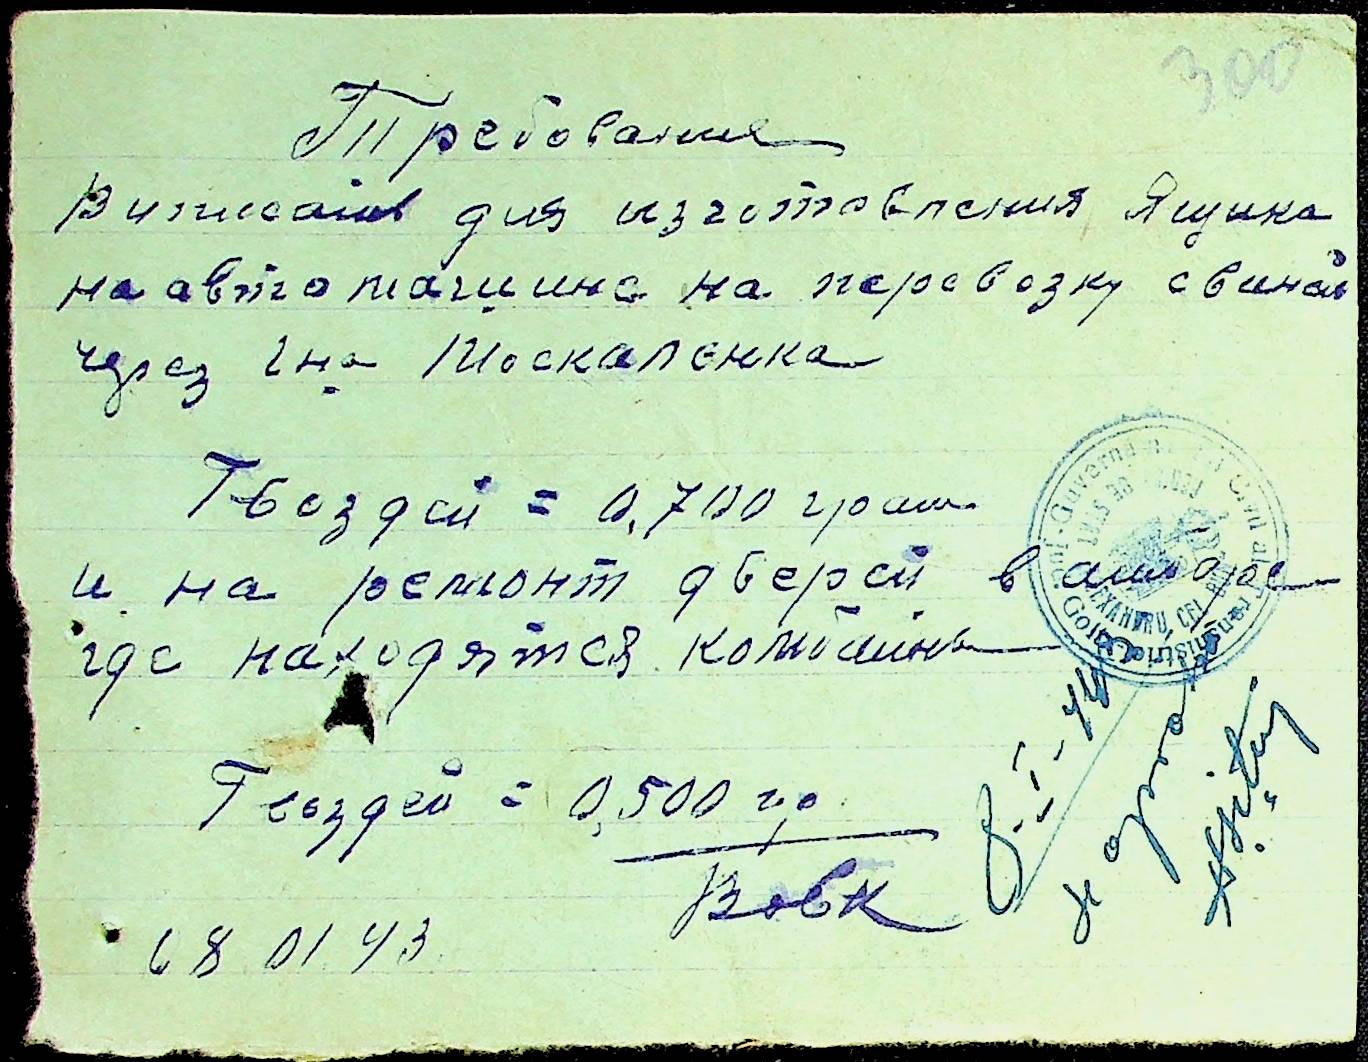 300
Требование
Виписать для изготовления Ящика
на автомашине на перевозку свиней
через Гна Москаленка
Гвоздей = 0,700 грам
и на ремонт дверей в амбаре
где находятся комбайны
Гвоздей = 0,500 гр.
Вовк
8 01 43